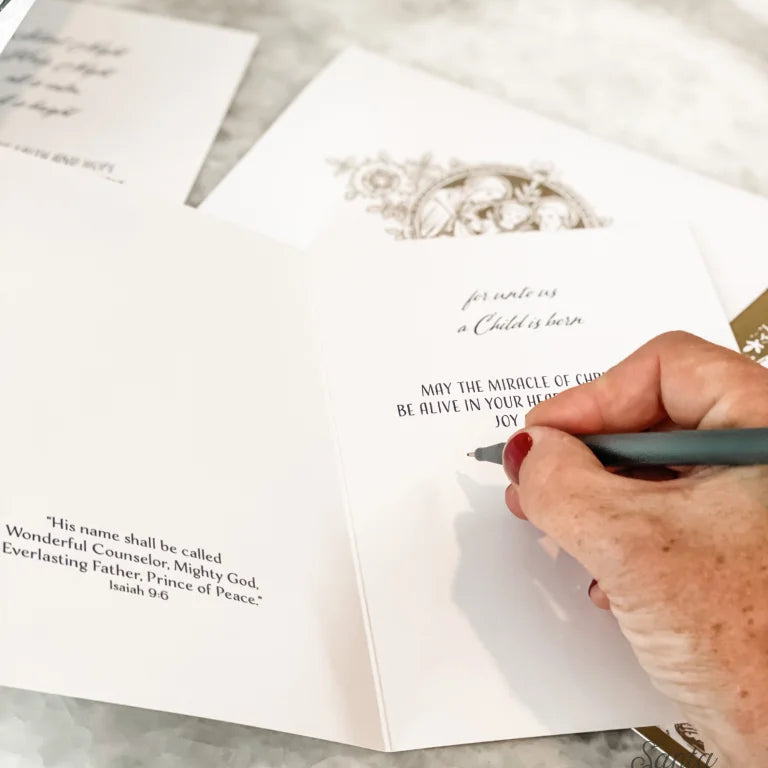 FAITH AND HOPE
for unto us
a Child is born
MAY THE MIRACLE OF
BE ALIVE IN YOUR
JOY
"His name shall be called
Wonderful Counselor, Mighty God,
Everlasting Father, Prince of Peace."
Isaiah 9:6